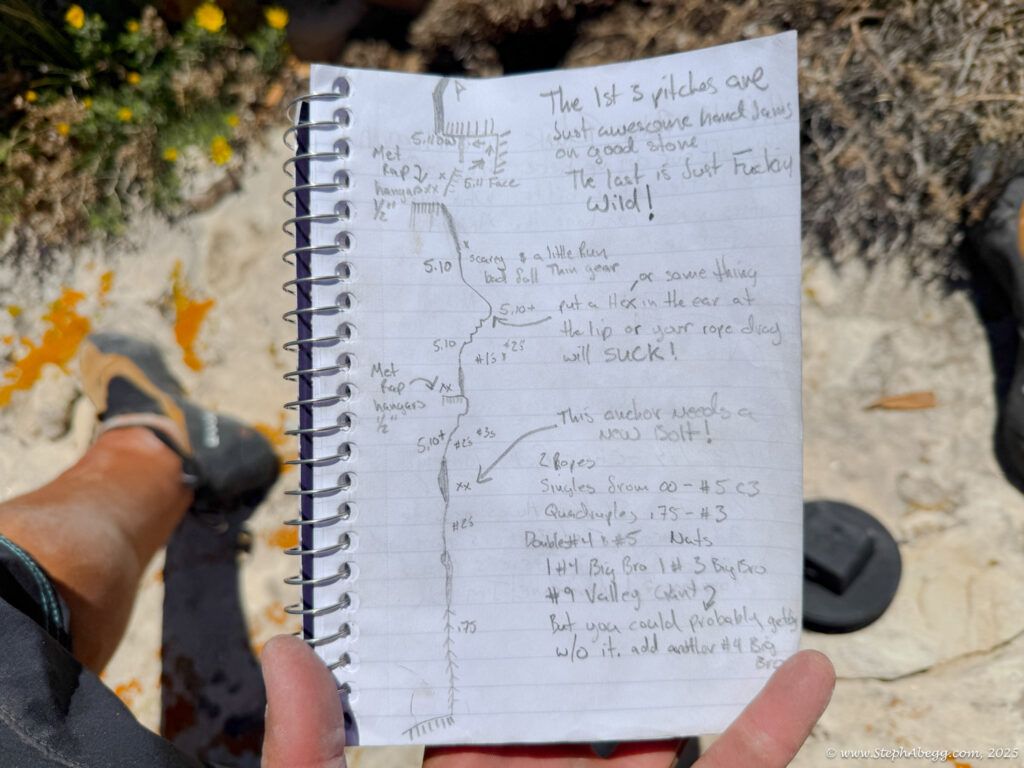 The 1st 3 pitches are
Just awesome hand Jams
on good stone
The last is Just Fuckin
Wild!
5.11 OW
5.11 Face
Met
Rap
hangars xx
1/2"
5.10
scarey & a little Run
bad fall Thin gear
5.10+
or something
put a Hex in the ear at
the lip or your rope drag
will SUCK!
5.10
#1s & #2s
Met
Rap
hangars
1/2"
xx
5.10+
#2s #3s
This anchor Needs a
New Bolt!
xx
2 Ropes
Singles from 00 - #5 C3
Quadruples .75 - #3
Double #4 & #5 Nuts
1 #4 Big Bro 1 #3 Big Bro
#9 Valley Giant
But you could probably getby
w/o it. add another #4 Big
Bro
#2s
.75
© www.StephAbegg.com, 2025